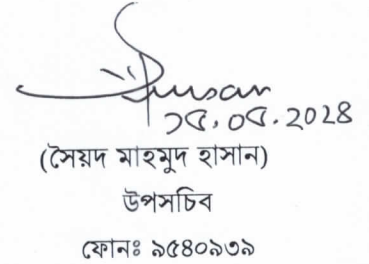 ১৫.০৫.২০২৪
(সৈয়দ মাহমুদ হাসান)
উপসচিব
ফোনঃ ৯৫৪০৯৩৯